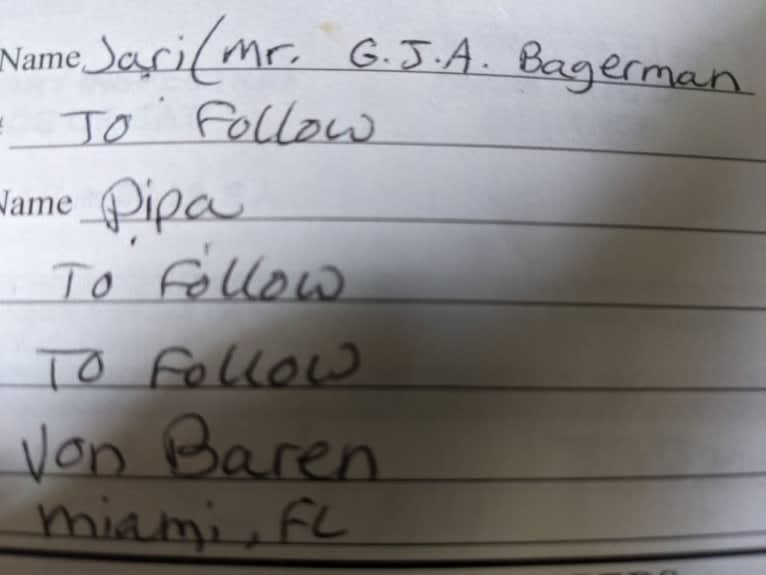 Name Jari (Mr. G.J.A. Bagerman
To Follow
Name Pipa
To Follow
To Follow
Von Baren
Miami, FL